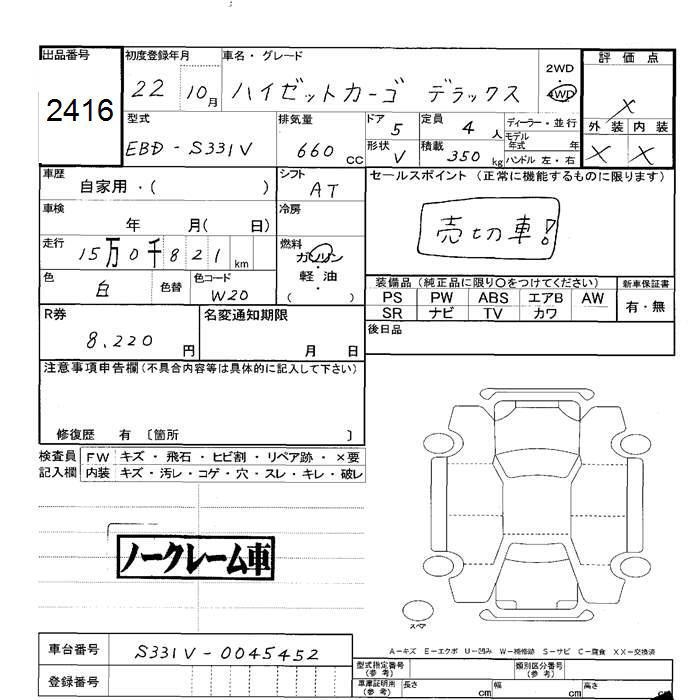 出品番号 初度登録年月 車名・グレード 評価点
2416 22 10月 ハイゼットカーゴ デラックス 2WD ・ 4WD X
型式 排気量 ドア 定員 ディーラー・並行 外装 内装
EBD-S331V 660CC 5 4人 モデル年式 年 X X
形状 V 積載 350kg ハンドル 左・右
車歴 シフト セールスポイント(正常に機能するものに限ります)
自家用・( ) AT
車検 冷房 売切車!
年 月( 日)
走行 燃料
15万0千821km ガソリン
軽・油
( )
色 色コード 装備品(純正品に限り○をつけてください) 新車保証書
白 色替 W20 PS PW ABS エアB AW 有・無
R券 名変通知期限 SR ナビ TV カワ
8,220円 月 日 後日品
注意事項申告欄(不具合内容等は具体的に記入して下さい)
修復歴 有 〔箇所 〕
検査員 FW キズ・飛石・ヒビ割・リペア跡・×要
記入欄 内装 キズ・汚レ・コゲ・穴・スレ・キレ・破レ
ノークレーム車
スペア
A―キズ E―エクボ U―凹み W―補修跡 S―サビ C―腐食 XX―交換済
車台番号 S331V-0045452
型式指定番号(参考) 類別区分番号(参考)
登録番号 車庫証明用(参考) 長さ cm 幅 cm 高さ cm